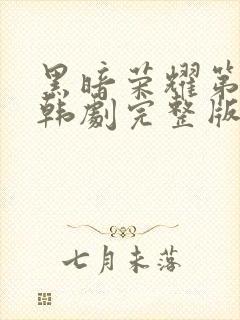 黑暗荣耀第
韩劇完整版
七月未落